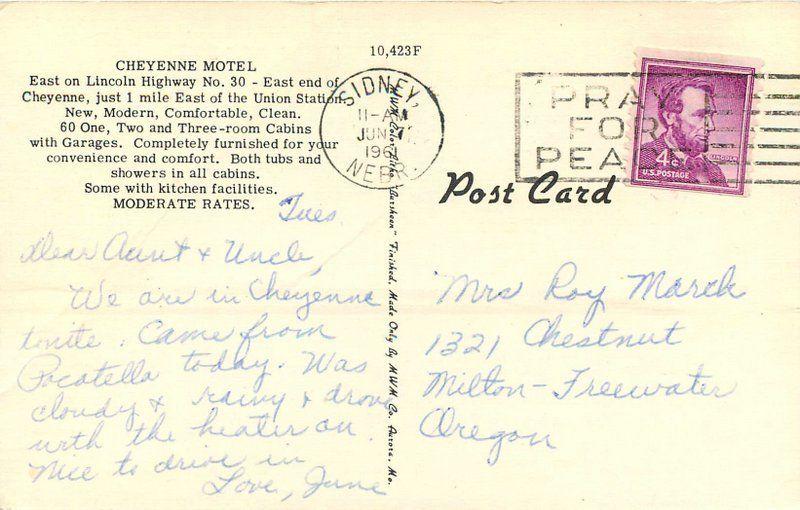 10,423F
CHEYENNE MOTEL
East on Lincoln Highway No. 30 - East end of
Cheyenne, just 1 mile East of the Union Station
New, Modern, Comfortable, Clean.
60 One, Two and Three-room Cabins
with Garages. Completely furnished for your
convenience and comfort. Both tubs and
showers in all cabins.
Some with kitchen facilities.
MODERATE RATES.
Tues.
Dear Aunt & Uncle,
We are in Cheyenne
tonite. Came from
Pocatella today. Was
cloudy & rainy & drove
with the heater on.
Nice to drive in
Love, June
SIDNEY,
11-AM
JUN
1961
NEBR.
"Finished, Made Only By M.W.M. Co. Aurora, Mo.
PRAY
FOR
PEACE
4¢
LINCOLN
U.S. POSTAGE
Post Card
Mrs Roy March
1321 Chestnut
Milton-Freewater
Oregon